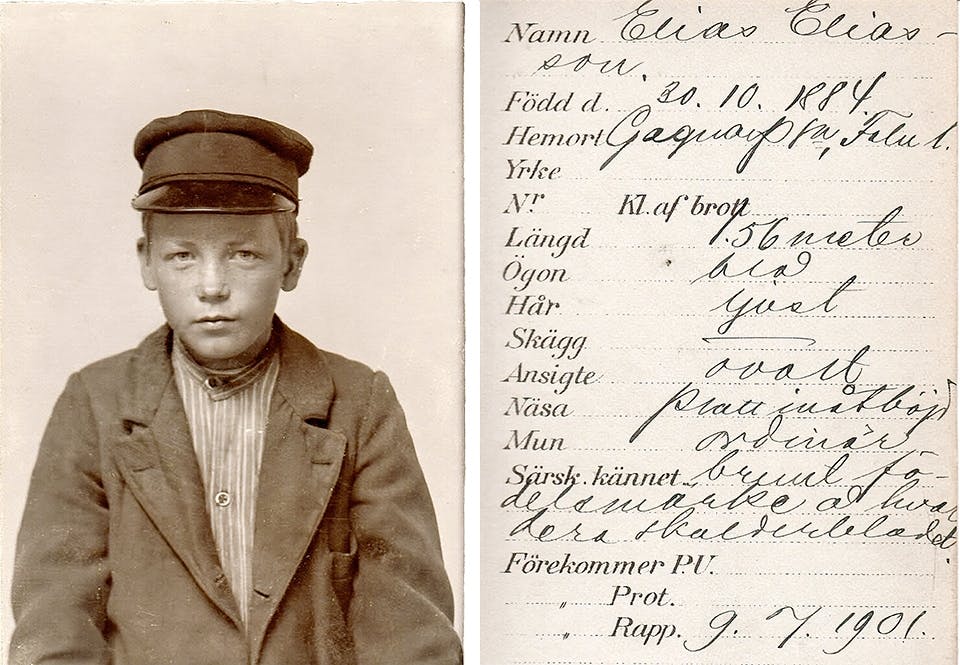 Namn Elias Elias-
son.
Född d. 30. 10. 1884.
Hemort Gagnefs sn, Falu l.
Yrke
Nr Kl. af brott
Längd 1.56 meter
Ögon blå
Hår ljust
Skägg —
Ansigte ovalt
Näsa platt inåtböjd
Mun ordinär
Särsk. kännet. brunt fö-
delsmärke å hvar
dera skulderbladet.
Förekommer P.U.
„ Prot.
„ Rapp. 9. 7. 1901.